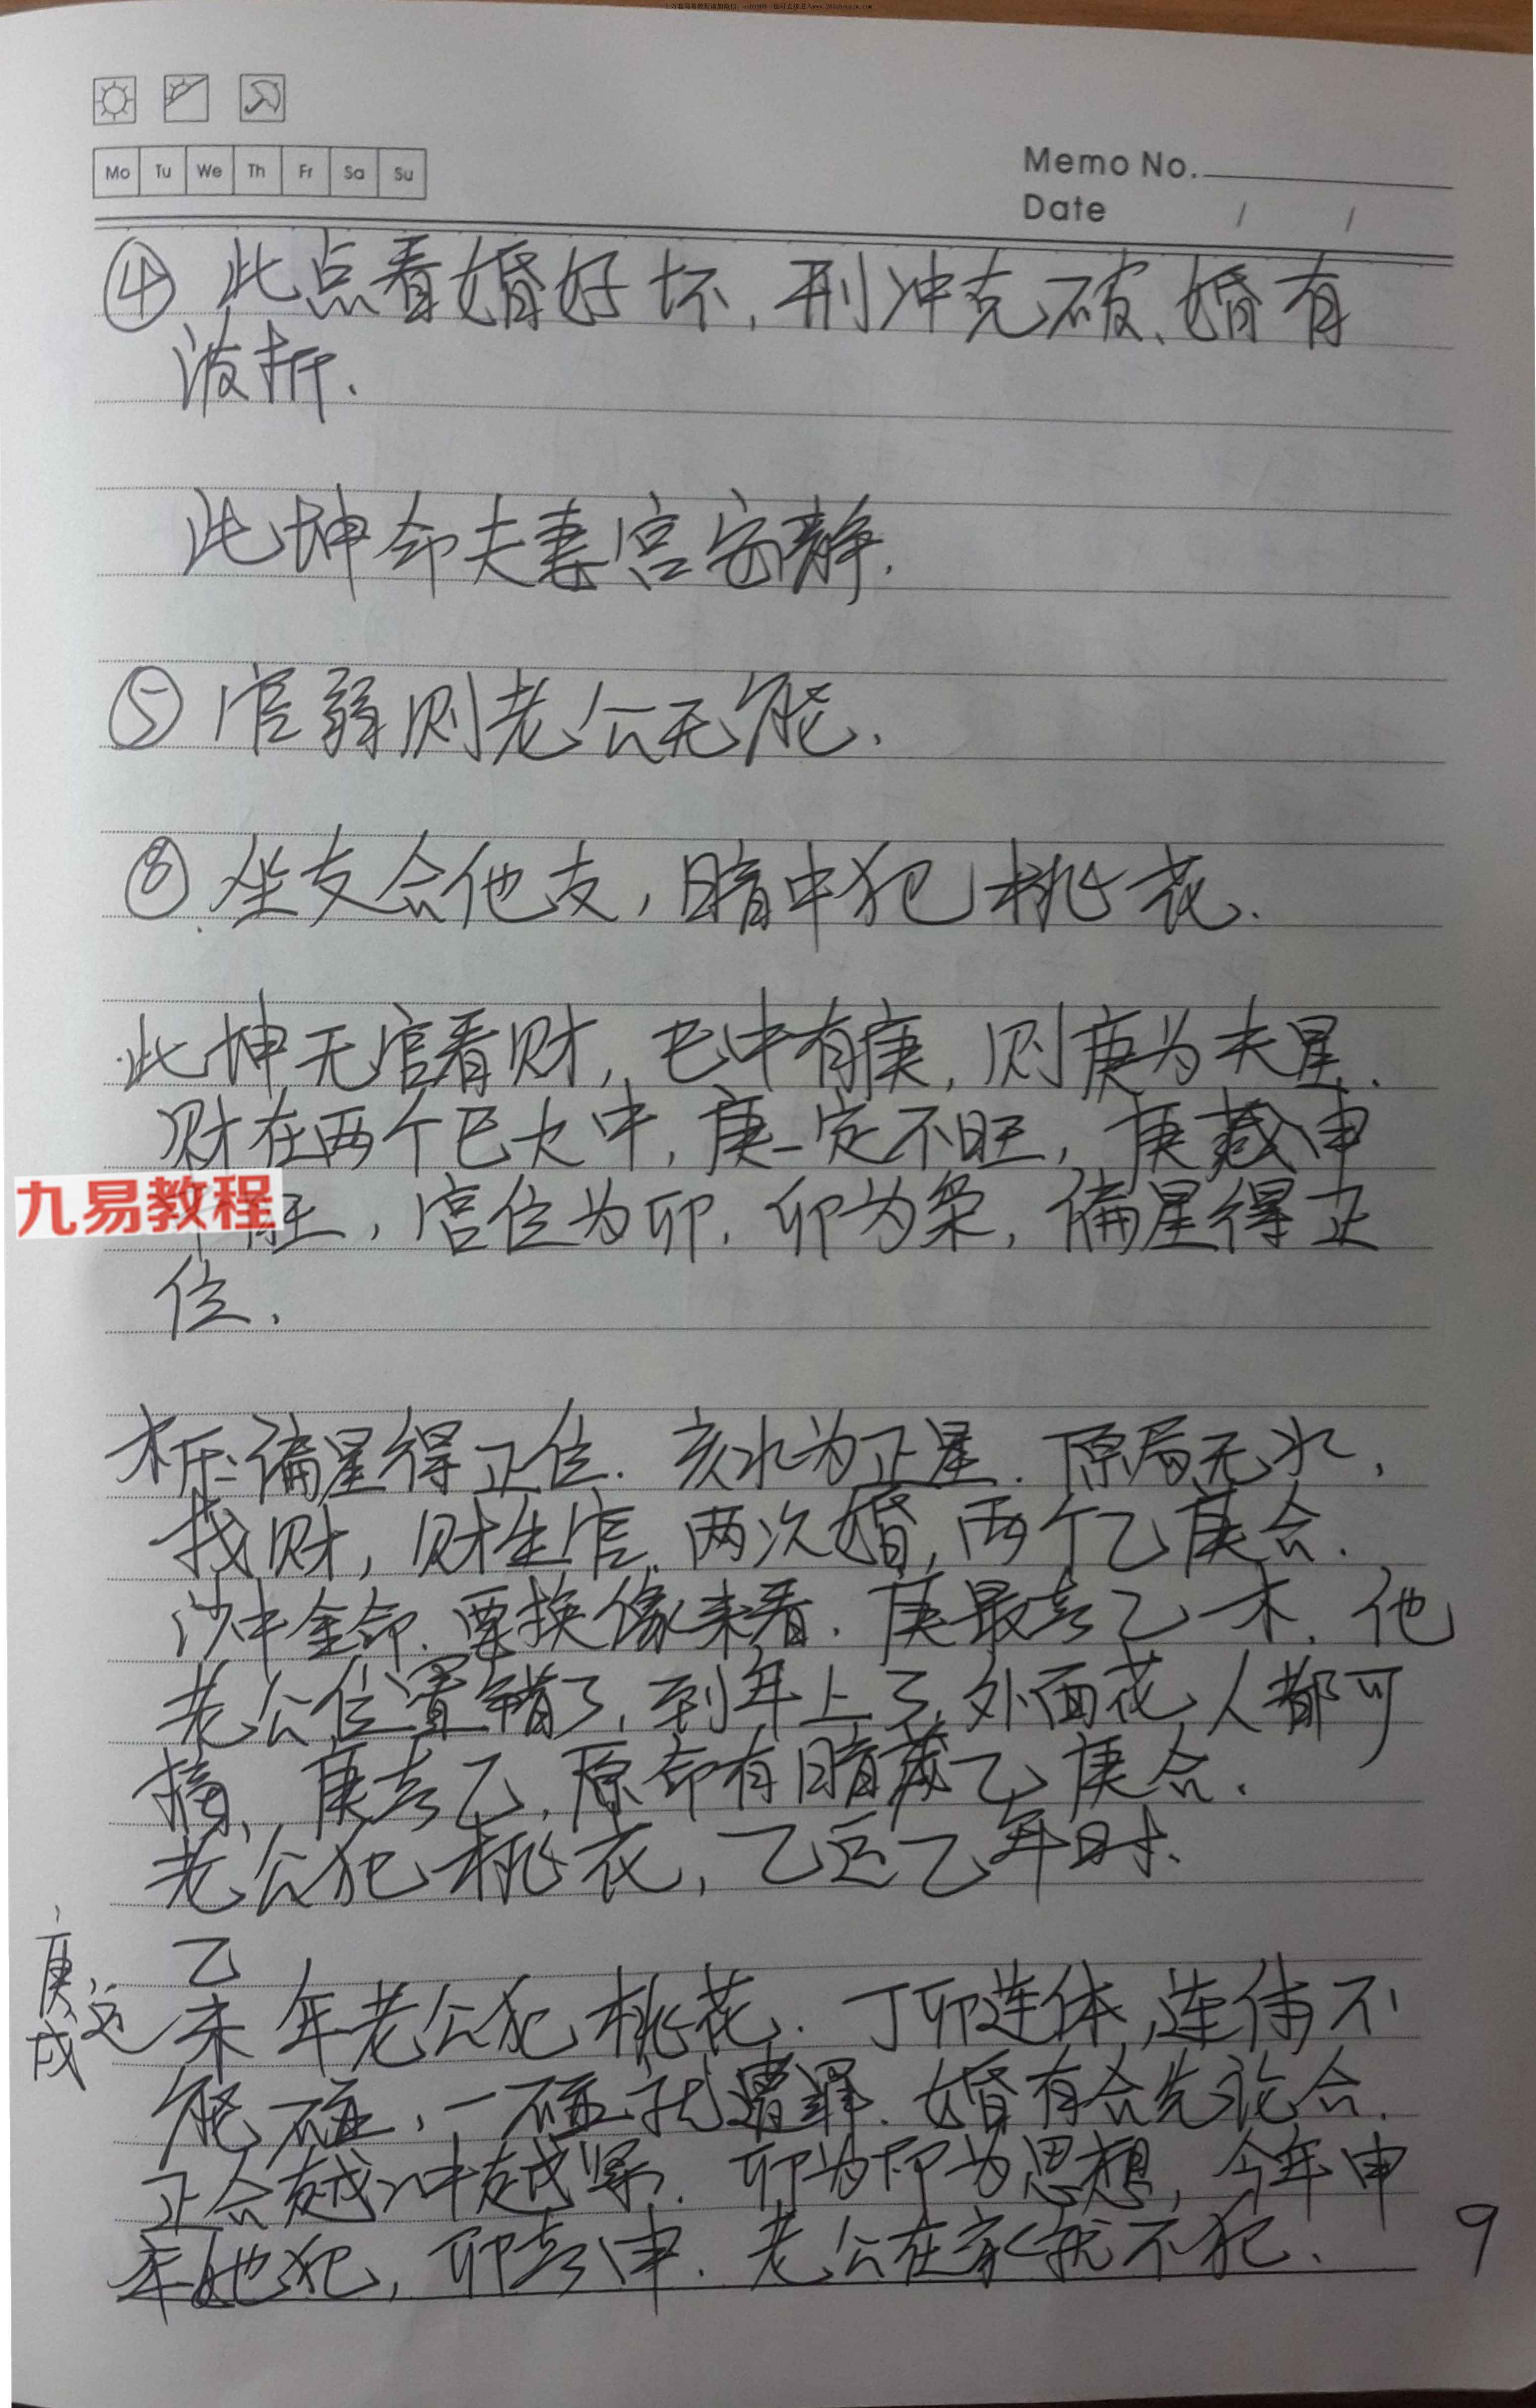 Mo Tu We Th Fr Sa Su
Memo No.
Date / /
④ 此点看婚好坏,刑冲克破、婚有
波折.
此坤命夫妻宫安静.
⑤ 官弱则老公无能.
⑥ 坐支合他支,暗中犯桃花.
此坤无官看财,巳中有庚,则庚为夫星.
财在两个巳火中,庚一定不旺,庚藏申
旺,宫位为卯.卯为枭,偏星得正
位.
九易教程
偏星得正位.亥水为正星.原局无水,
找财,财生官.两次婚,两个乙庚合.
沙中金命.要换像来看.庚最喜乙木.他
老公位置错了,到年上了,外面花人都可
摘、庚喜乙,原命有暗藏乙庚合.
老公犯桃花,乙运乙年时.
庚戌运 乙未年老公犯桃花.丁卯连体,连体不
能碰,一碰就遭罪.婚有合先论合.
正合越冲越紧.卯为印为思想,今年申
年她犯,卯喜申.老公在家就不犯.
9